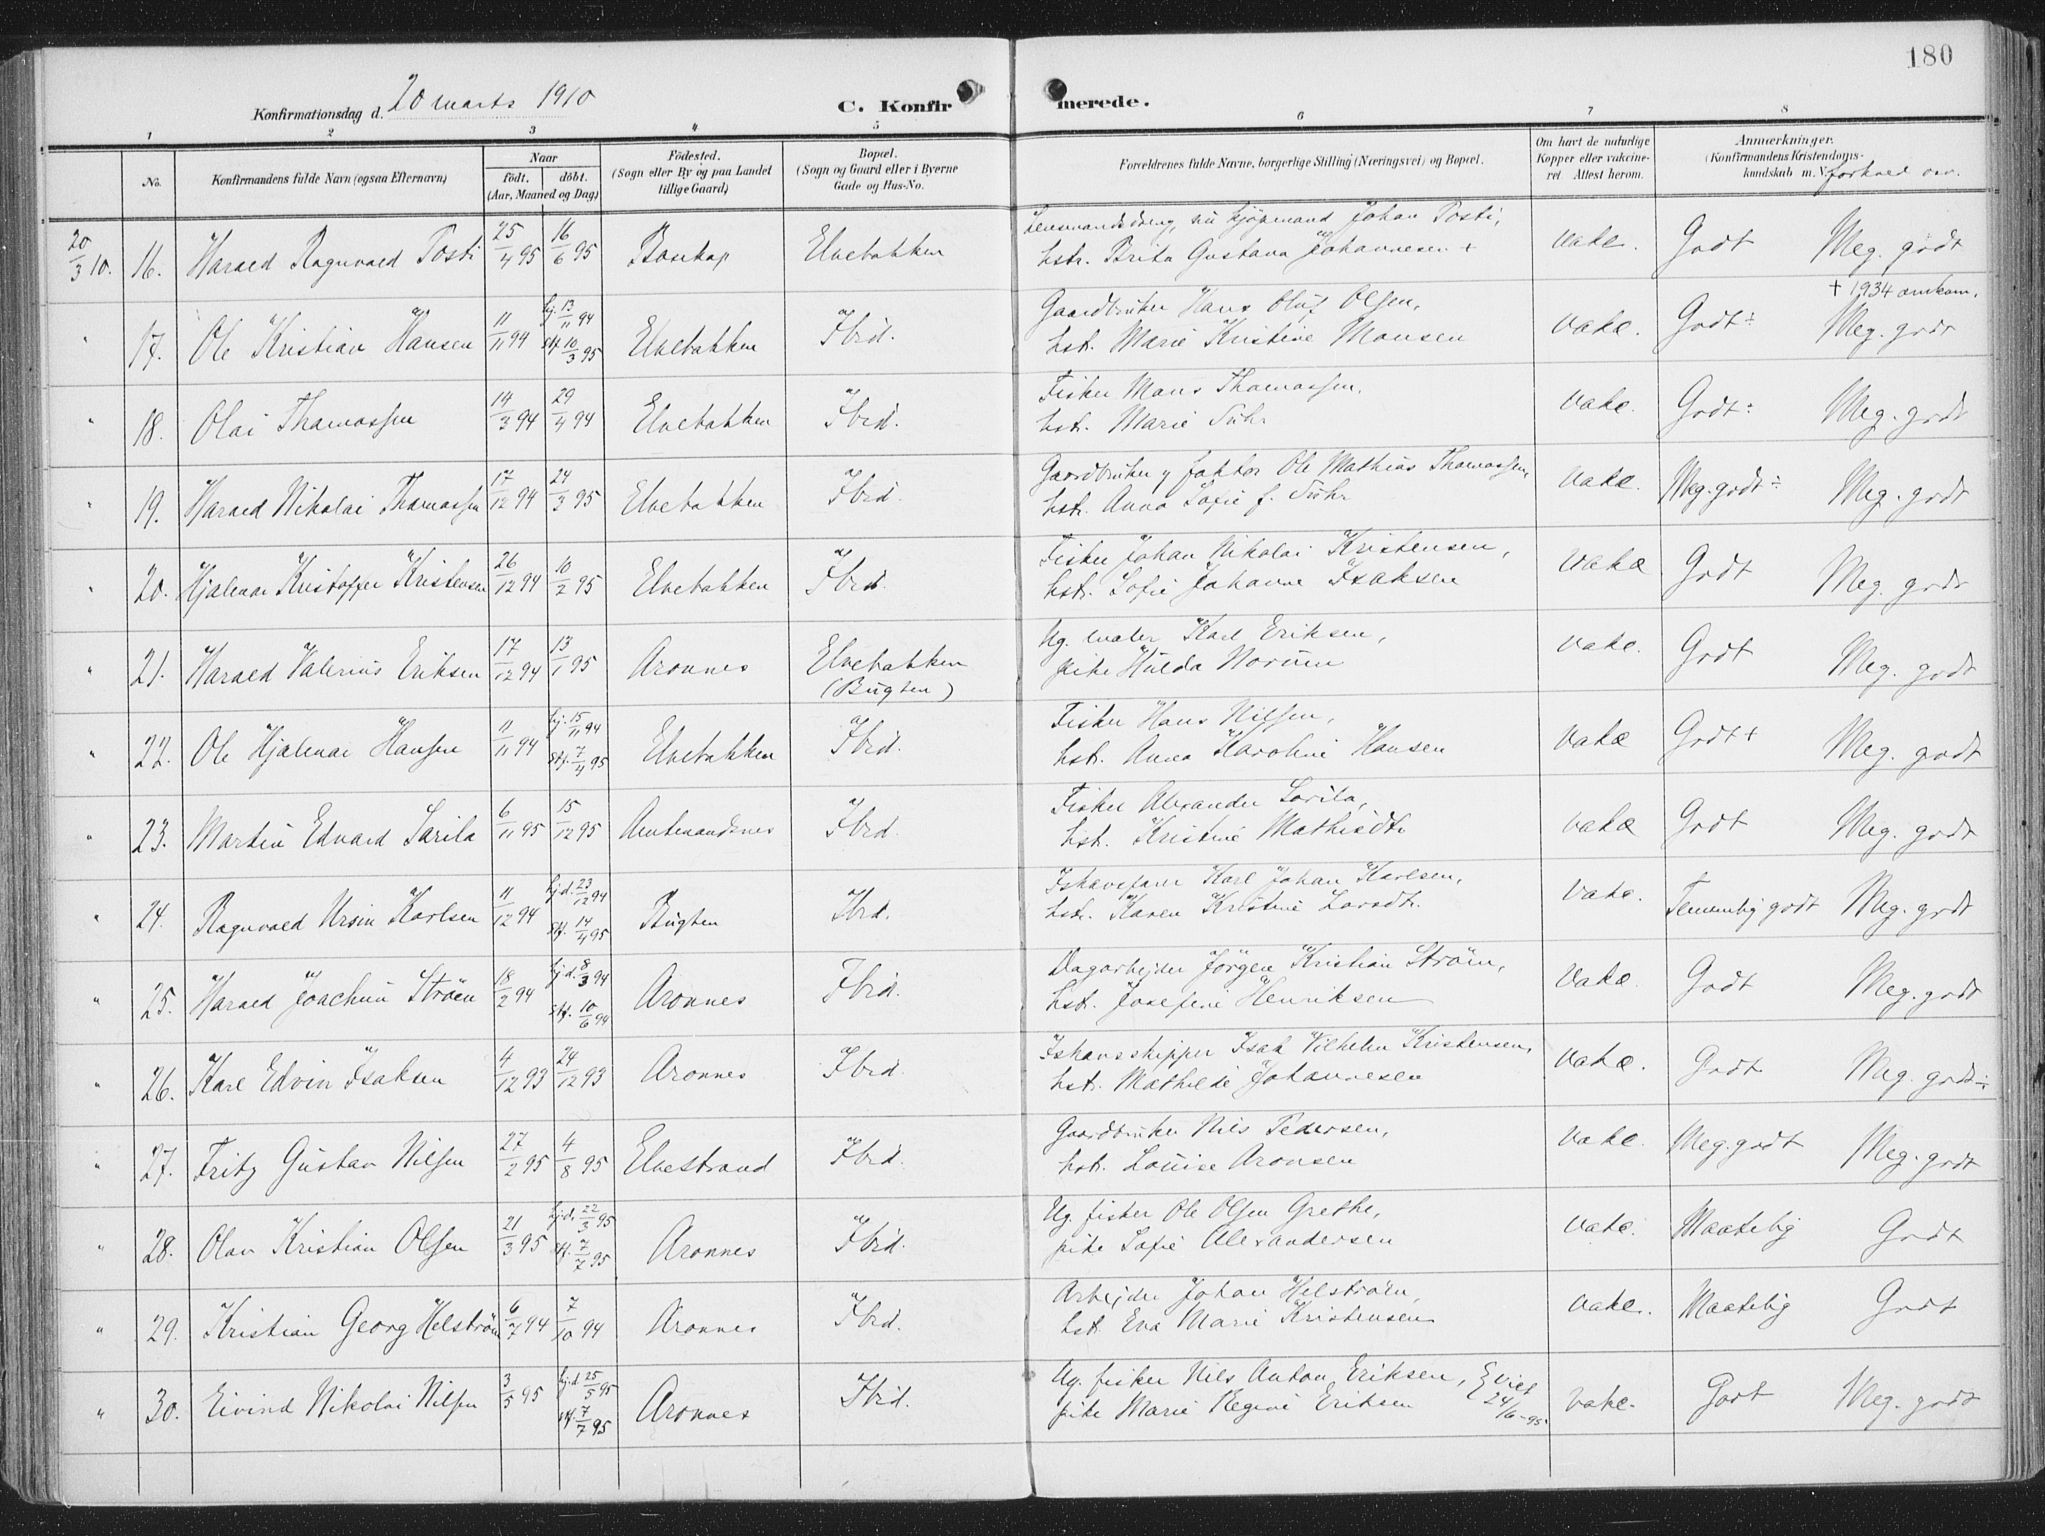 180
Konfirmationsdag d. 20 marts 1910
C. Konfirmerede.
1 2 3 4 5 6 7 8
No.
Konfirmandens fulde Navn (ogsaa Efternavn)
Naar
födt. döbt.
(Aar, Maaned og Dag)
Födested.
(Sogn eller By og paa Landet
tillige Gaard)
Bopæl.
(Sogn og Gaard eller i Byerne
Gade og Hus-No.
Forældrenes fulde Navne, borgerlige Stilling (Næringsvei) og Bopæl.
Om havt de naturlige
Kopper eller vakcine-
ret. Attest herom.
Anmærkninger.
(Konfirmandens Kristendoms-
kundskab m. V. forhold osv.
20/3 10. 16. Harald Ragnvald Posti 25/4 95 16/6 95 Bosekop Elvebakken
Lensmandsdreng, nu kjøpmand Johan Posti,
hstr. Brita Gustava Johannesen +
vakc. Godt Meg. godt
" 17. Ole Kristian Hansen 11/11 94 hj. 13/11 94 stf. 10/3 95 Elvebakken Ibid.
Gaardbruker Hans Oluf Olsen,
hstr. Marie Kristine Monsen
vakc. Godt÷ Meg. godt
+ 1934 omkom.
" 18. Olai Thomassen 14/3 94 29/4 94 Elvebakken Ibid.
Fisker Mons Thomassen,
hstr. Marie Suhr
vakc. Godt÷ Meg. godt
" 19. Harald Nikolai Thomassen 17/12 94 24/3 95 Elvebakken Ibid.
Gaardbruker og faktor Ole Mathias Thomassen,
hstr. Anna Sofie f. Suhr
vakc. Meg. godt÷ Meg. godt
" 20. Hjalmar Kristoffer Kristensen 26/12 94 10/2 95 Elvebakken Ibid.
Fisker Johan Nikolai Kristensen,
hstr. Sofie Johanne Isaksen
vakc Godt Meg. godt
" 21. Harald Valerius Eriksen 17/12 94 13/1 95 Aronnes Elvebakken
(Bugten)
Ug. maler Karl Eriksen,
pike Hulda Norum
vakc. Godt Meg. godt
" 22. Ole Hjalmar Hansen 11/11 94 hj. 15/11 94 stf. 7/4 95 Elvebakken Ibid.
Fisker Hans Nilsen,
hstr. Anna Karoline Hansen
vakc Godt+ Meg. godt
" 23. Martin Edvard Sarila 6/11 95 15/12 95 Amtmandsnes Ibid.
Fisker Alexander Sarila,
hstr. Kristine Mathisdtr.
vakc Godt Meg. godt
" 24. Ragnvald Ursin Karlsen 11/12 94 hj.d. 23/12 94 stf. 14/4 95 Bugten Ibid.
Ishavsfarer Karl Johan Karlsen,
hstr. Karen Kristine Larsdtr.
vakc. Temmelig godt Meg. godt
" 25. Harald Joachim Strøm 18/2 94 hj.d. 8/3 94 stf. 10/6 94 Aronnes Ibid.
Dagarbejder Jörgen Kristian Ström,
hstr. Josefine Henriksen
vakc. Godt Meg. godt
" 26. Karl Edvin Isaksen 4/12 93 24/12 93 Aronnes Ibid.
Ishavsskipper Isak Vilhelm Kristensen,
hstr. Mathilde Johannesen
vakc. Godt Meg. godt÷
" 27. Fritz Gustav Nilsen 27/2 95 4/8 95 Elvestrand Ibid.
Gaardbruker Nils Pedersen,
hstr. Louise Aronsen
vakc. Meg. godt Meg. godt
" 28. Olav Kristian Olsen 21/3 95 hj.d. 22/3 95 stf. 7/7 95 Aronnes Ibid.
Ug. fisker Ole Olsen Grethe,
pike Sofie Alexandersen
vakc. Maatelig Godt
" 29. Kristian Georg Helström 6/7 94 7/10 94 Aronnes Ibid.
Arbejder Johan Helström,
hstr. Eva Marie Kristensen
vakc. Maatelig Godt
" 30. Eivind Nikolai Nilsen 3/5 95 hj.d. 25/5 95 stf. 7/7 95 Aronnes Ibid.
Ug. fisker Nils Anton Eriksen,
pike Marie Regine Eriksen
viet 24/6-95
vakc. Godt Meg. godt